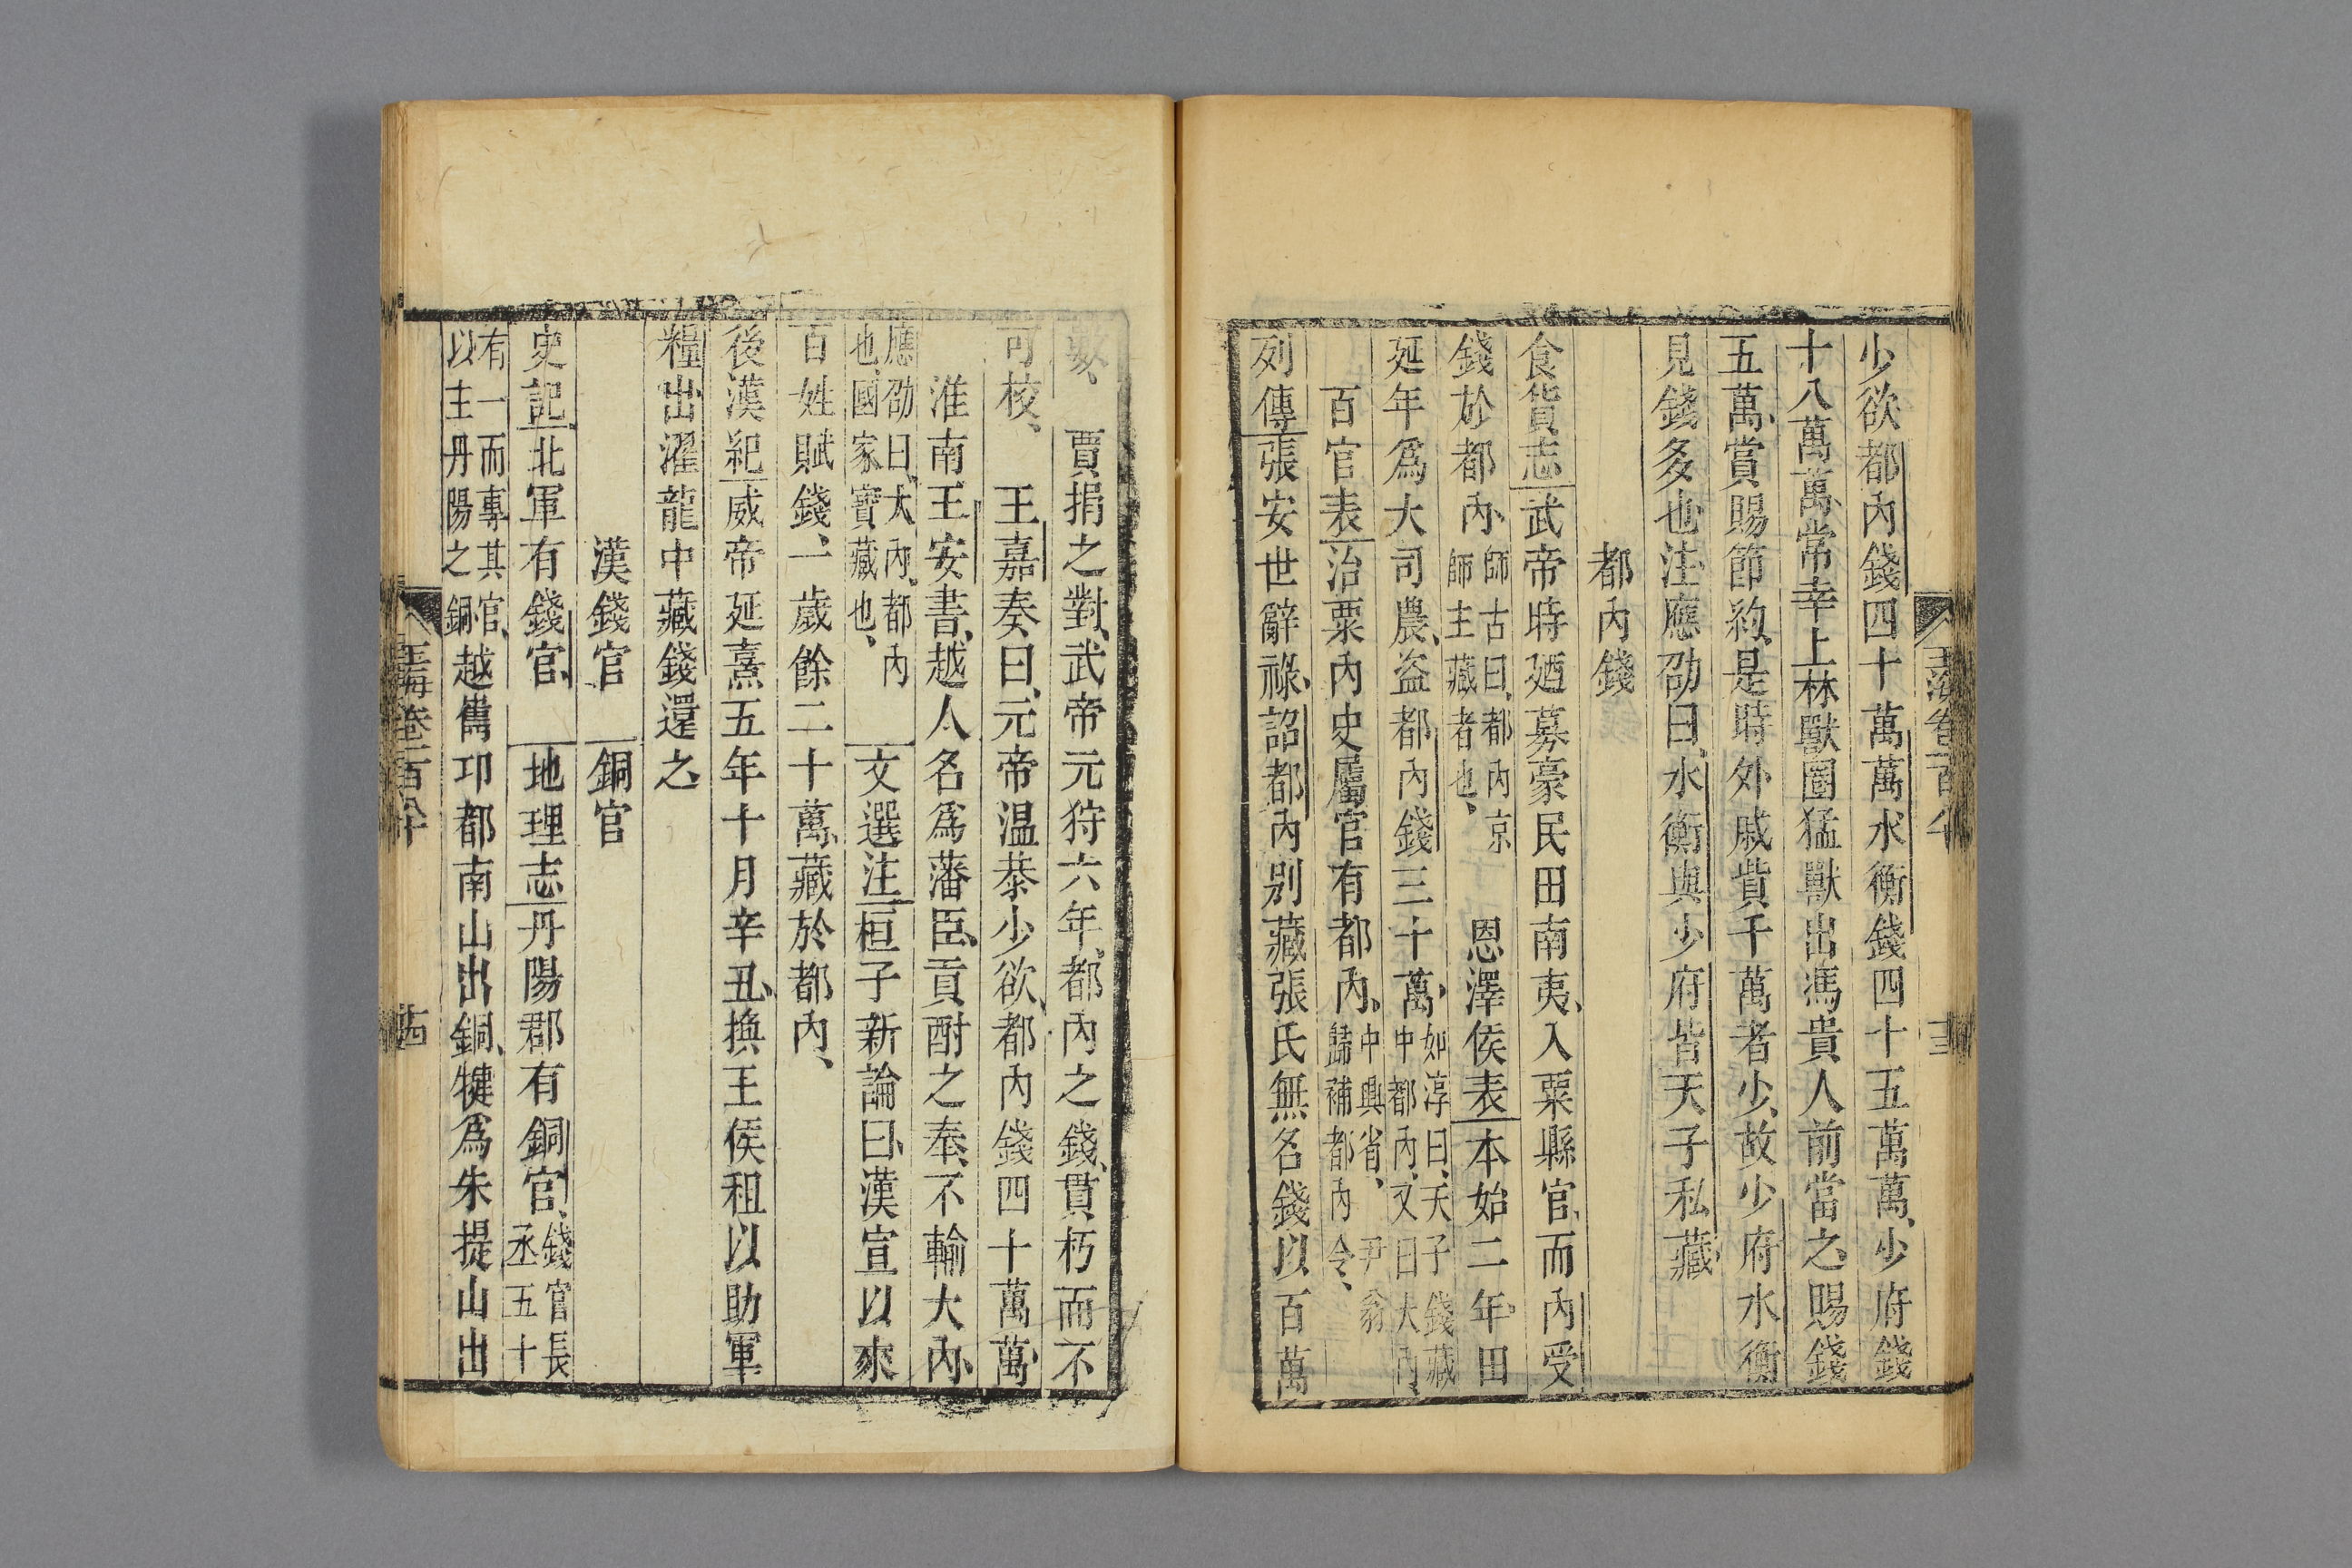 少欲都內錢四十萬萬水衡錢四十五萬萬、少府錢
十八萬萬、常幸上林獸圈猛獸出馮貴人前當之賜錢
五萬、賞賜節約、是時外戚貲千萬者少、故少府水衡
見錢多也注應劭曰、水衡與少府皆天子私藏
都內錢
食貨志武帝時廼募豪民田南夷、入粟縣官、而內受
錢於都內、師古曰、都內京師主藏者也、 恩澤侯表本始二年田
延年爲大司農、盜都內錢三十萬、如淳曰、天子錢藏中都內、又曰大內、
百官表治粟內史屬官有都內、中興省、尹翁歸補都內令、
列傳張安世辭祿、詔都內別藏張氏無名錢以百萬
數、 賈捐之對、武帝元狩六年、都內之錢、貫朽而不
可校、 王嘉奏曰、元帝温恭少欲、都內錢四十萬萬、
淮南王安書、越人名爲藩臣、貢酎之奉、不輸大內、
應劭曰、大內、都內也、國家寶藏也、 文選注桓子新論曰、漢宣以來
百姓賦錢、一歲餘二十萬、藏於都內、
後漢紀威帝延熹五年十月辛丑、換王侯租以助軍
糧出濯龍中藏錢還之
漢錢官 銅官
史記北軍有錢官、 地理志丹陽郡有銅官、錢官長丞五十
有一而專其官、以主丹陽之銅 越雋邛都南山出銅、犍爲朱提山出
玉海卷一百八十
十四